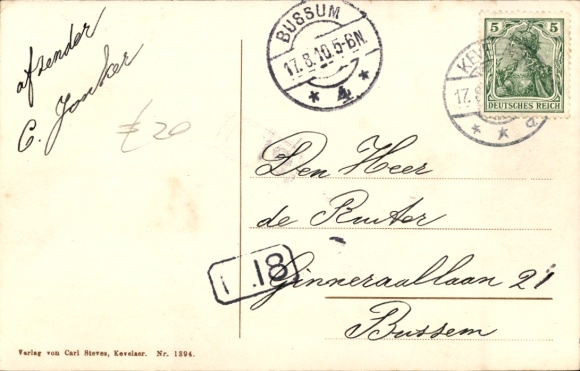 afzender
C. Jonker
£20
BUSSUM
17.8.10.5-6N.
* 4 *
KEVE
17.8
* * a
5 5
DEUTSCHES REICH
Den Heer
de Ruiter
Ginneraallaan 21
Bussem
1 .18
Verlag von Carl Steves, Kevelaer. Nr. 1394.